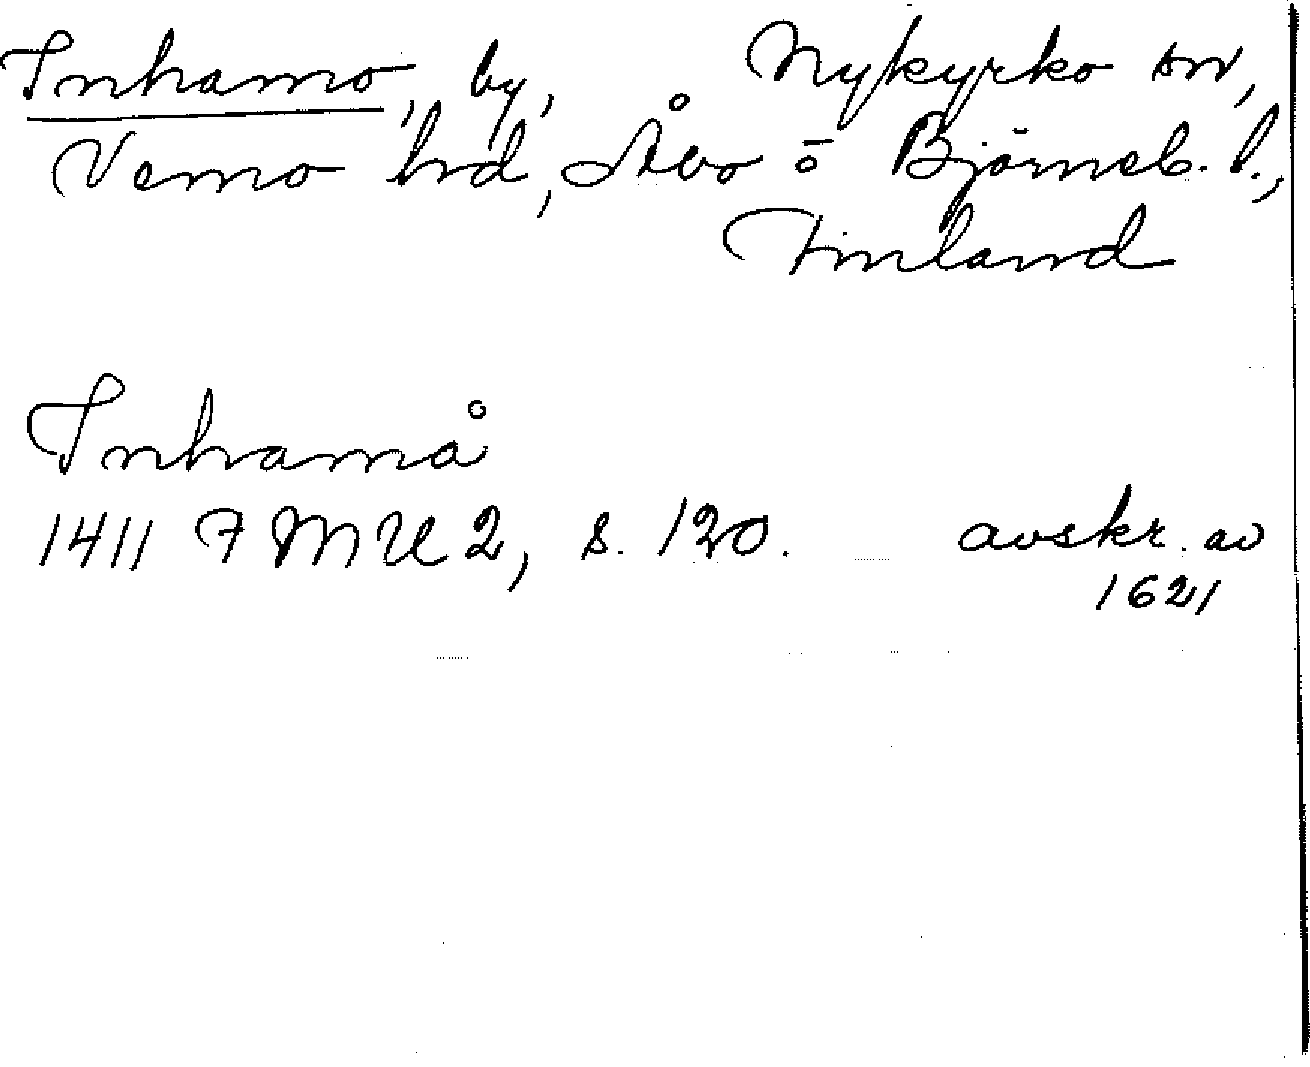 Inhamo, by, Nykyrko sn,
Vemo hd, Åbo o Björneb. l.,
Finland
Inhamå
1411 FMU 2, s. 120. avskr. av
1621